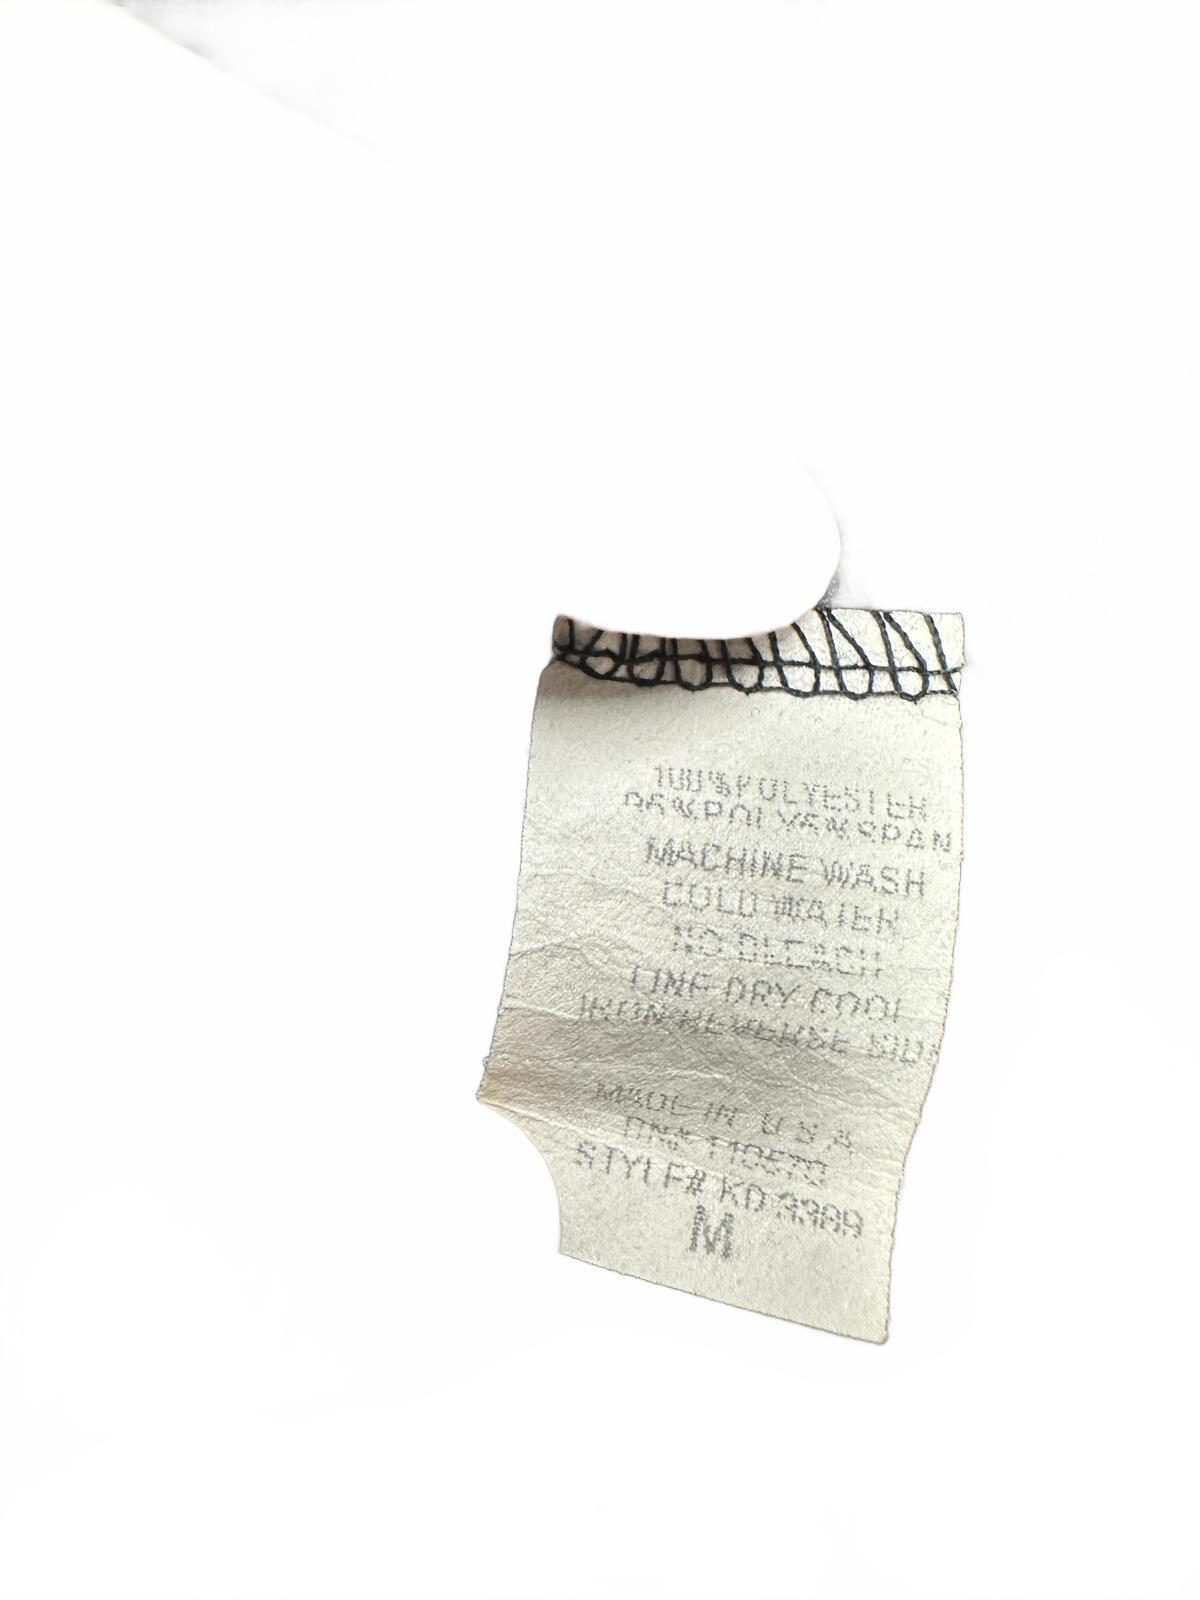 100%POLYESTER
95%POLY5%SPAN
MACHINE WASH
COLD WATER
NO BLEACH
LINE DRY COOL
IRON REVERSE SIDE
MADE IN U S A
STYLE# KD 3389
M